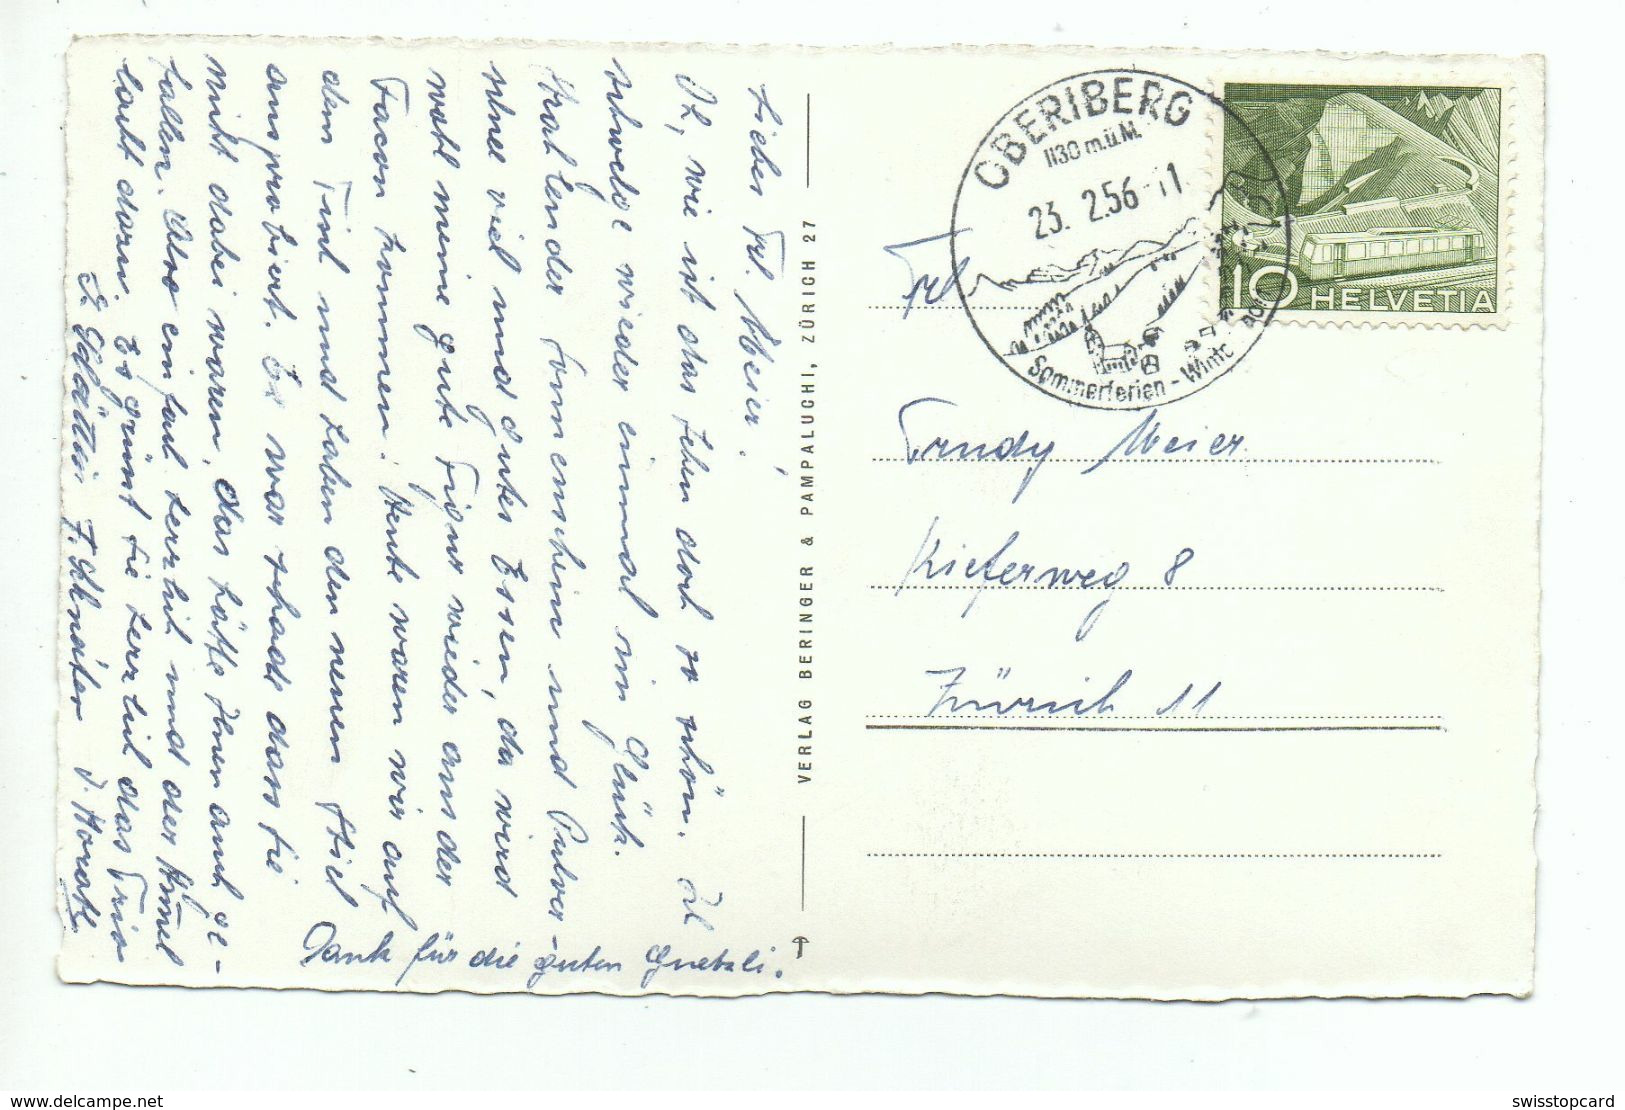 Liebes Frl. Meier!
Oh, wie ist das Leben doch so schön. Ich
schwelge wieder einmal im Glück.
Strahlender Sonnenschein und Pulver-
schnee viel und gutes Essen, da wird
wohl meine gute Figur wieder aus der
Façon kommen. Heute waren wir auf
dem First und haben den neuen Stiel
ausprobiert. Es war schade dass Sie
nicht dabei waren, das hätte Ihnen auch ge-
fallen. Also einfach herrlich und der Himel
lacht dazu. Es grüsst Sie herzlich das Trio
F. Schnäter J. Horath
Dank für die guten Guetzli.
VERLAG BERINGER & PAMPALUCHI, ZÜRICH 27
OBERIBERG
1130 m.ü.M.
23. 2.56
Sommerferien - Winte
10 HELVETIA
Frl
Trudy Meier
Kieferweg 8
Zürich 11
www.delcampe.net
swisstopcard